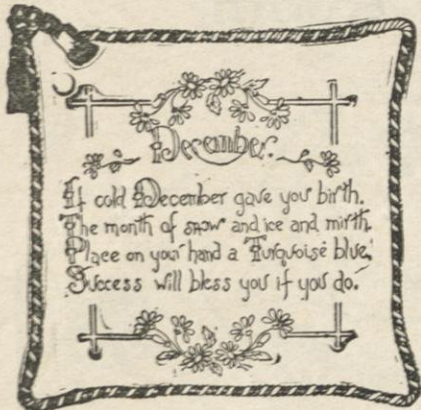 December.
If cold December gave you birth.
The month of snow and ice and mirth.
Place on your hand a Turquoise blue,
Success will bless you if you do.